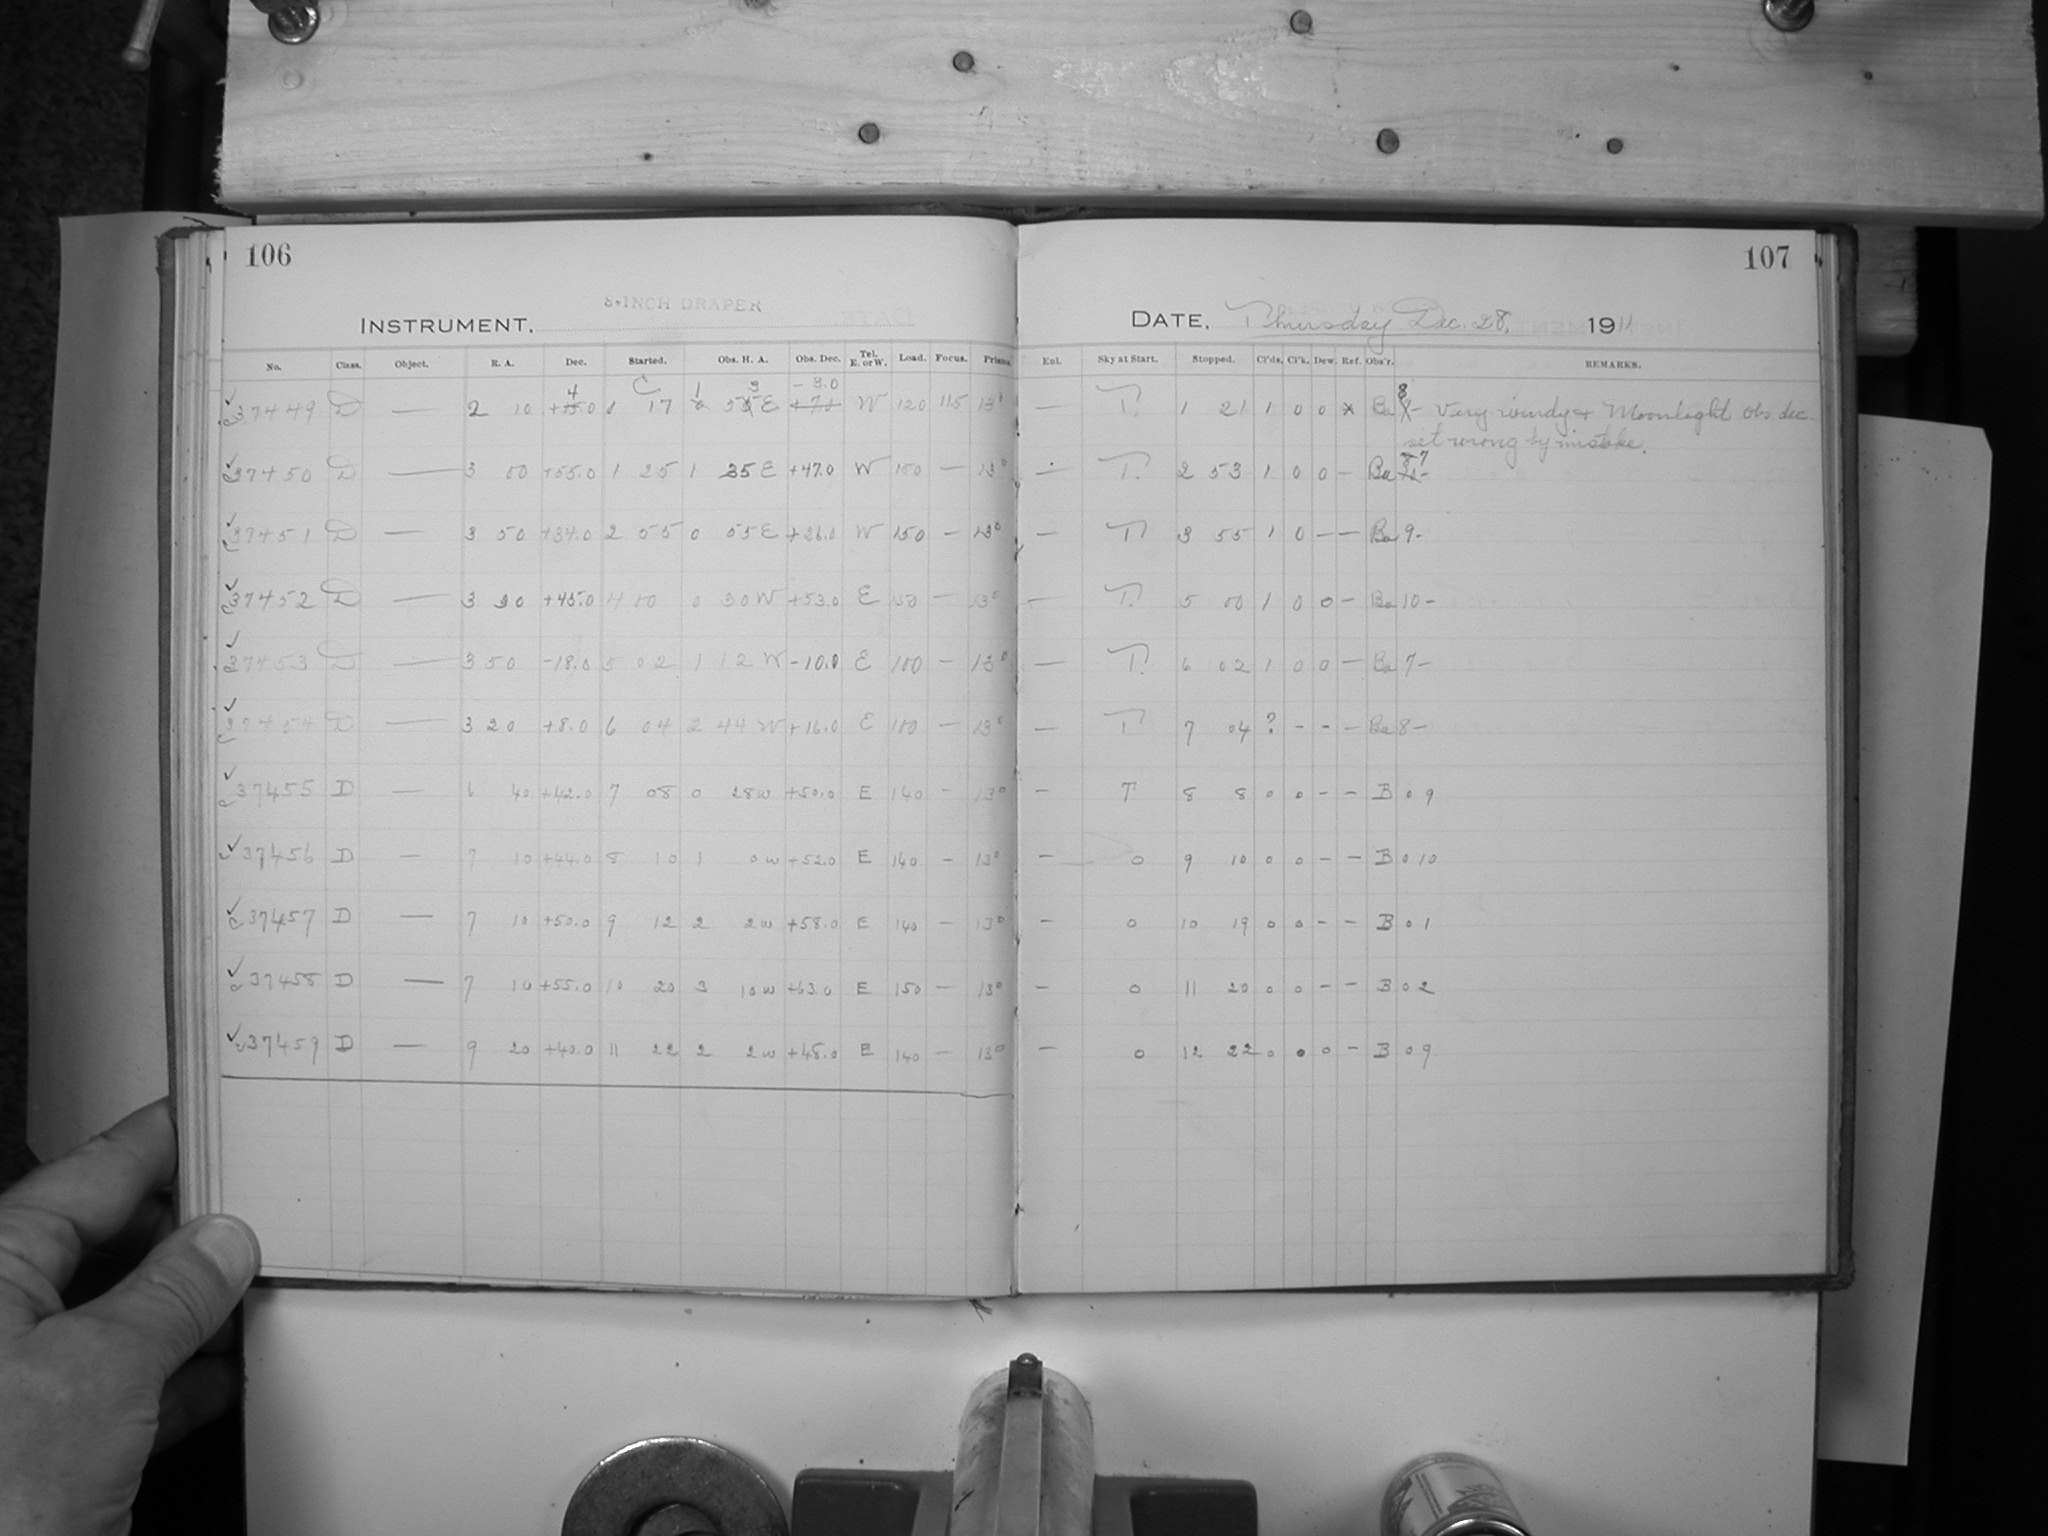 106
8-INCH DRAPER
INSTRUMENT,
No. Class. Object. R. A. Dec. Started. Obs. H. A. Obs. Dec. Tel. E. or W. Load. Focus. Prisms
4 1 3 -8.0
37449 D — 2 10 17 E W 120 115 13°
37450 D — 3 00 +55.0 1 25 1 35 E +47.0 W 150 — 13°
37451 D — 3 50 +34.0 2 55 0 05 E +26.0 W 150 — 13°
37452 D — 3 30 +45.0 4 00 0 30 W +53.0 E 150 — 13°
37453 D — 3 50 -18.0 5 02 1 12 W -10.0 E 100 — 13°
37454 D — 3 20 +8.0 6 04 2 44 W +16.0 E 100 — 13°
37455 D — 6 40 +42.0 7 08 0 28 w +50.0 E 140 - 13°
37456 D — 7 10 +44.0 8 10 1 0 w +52.0 E 140 - 13°
37457 D — 7 10 +50.0 9 12 2 2 w +58.0 E 140 - 13°
37458 D — 7 10 +55.0 10 20 3 10 w +63.0 E 150 — 13°
37459 D — 9 20 +40.0 11 22 2 2 w +48.0 E 140 - 13°
107
DATE, Thursday Dec. 28, 1911
Enl. Sky at Start. Stopped. Cl'ds. Cl'k. Dew. Ref. Obs'r. REMARKS.
— T. 1 21 1 0 0 x Ba 8 - Very windy + Moonlight obs dec.
set wrong by mistake.
— T. 2 53 1 0 0 - Ba
— T. 3 55 1 0 — — Ba 9-
— T. 5 00 1 0 0 - Ba 10-
— T. 6 02 1 0 0 — Ba 7-
— T 7 04 ? - - - Ba 8-
— T 8 8 0 0 - - B 0 9
— 0 9 10 0 0 - - B 0 10
— 0 10 19 0 0 - - B 0 1
— 0 11 20 0 0 - - B 0 2
— 0 12 22 0 0 0 - B 0 9